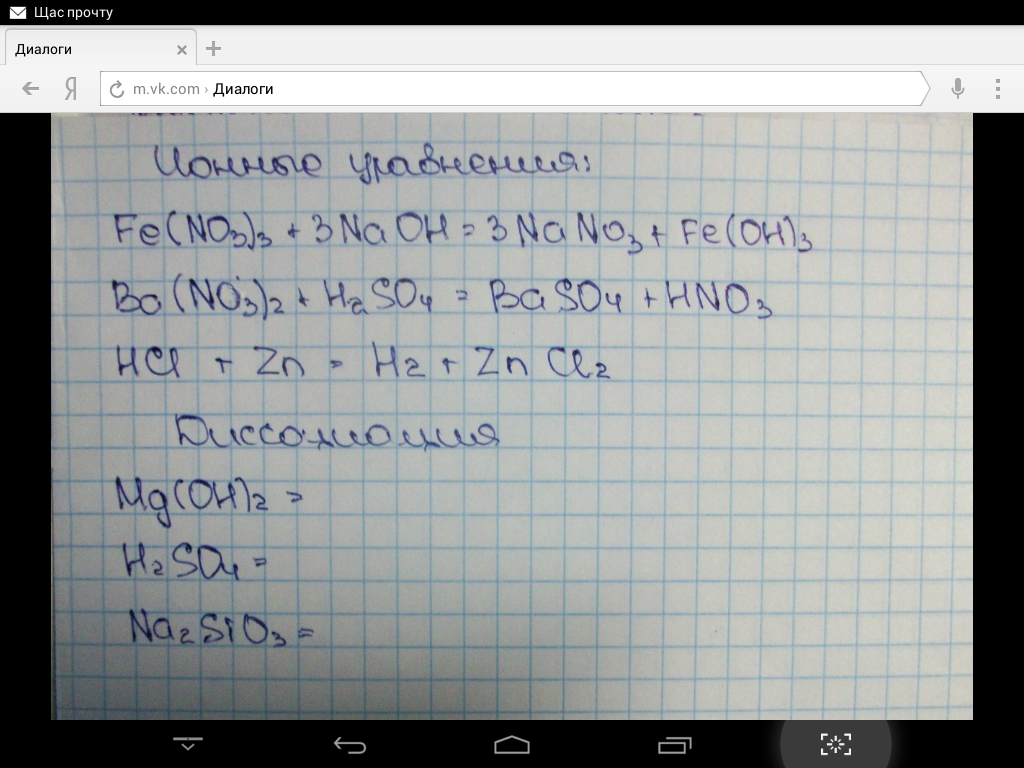 Щас прочту
Диалоги
m.vk.com › Диалоги
Ионные уравнения:
Fe(NO3)3 + 3NaOH = 3NaNO3 + Fe(OH)3
Ba(NO3)2 + H2SO4 = BaSO4 + HNO3
HCl + Zn = H2 + ZnCl2
Диссоциация
Mg(OH)2 =
H2SO4 =
Na2SiO3 =